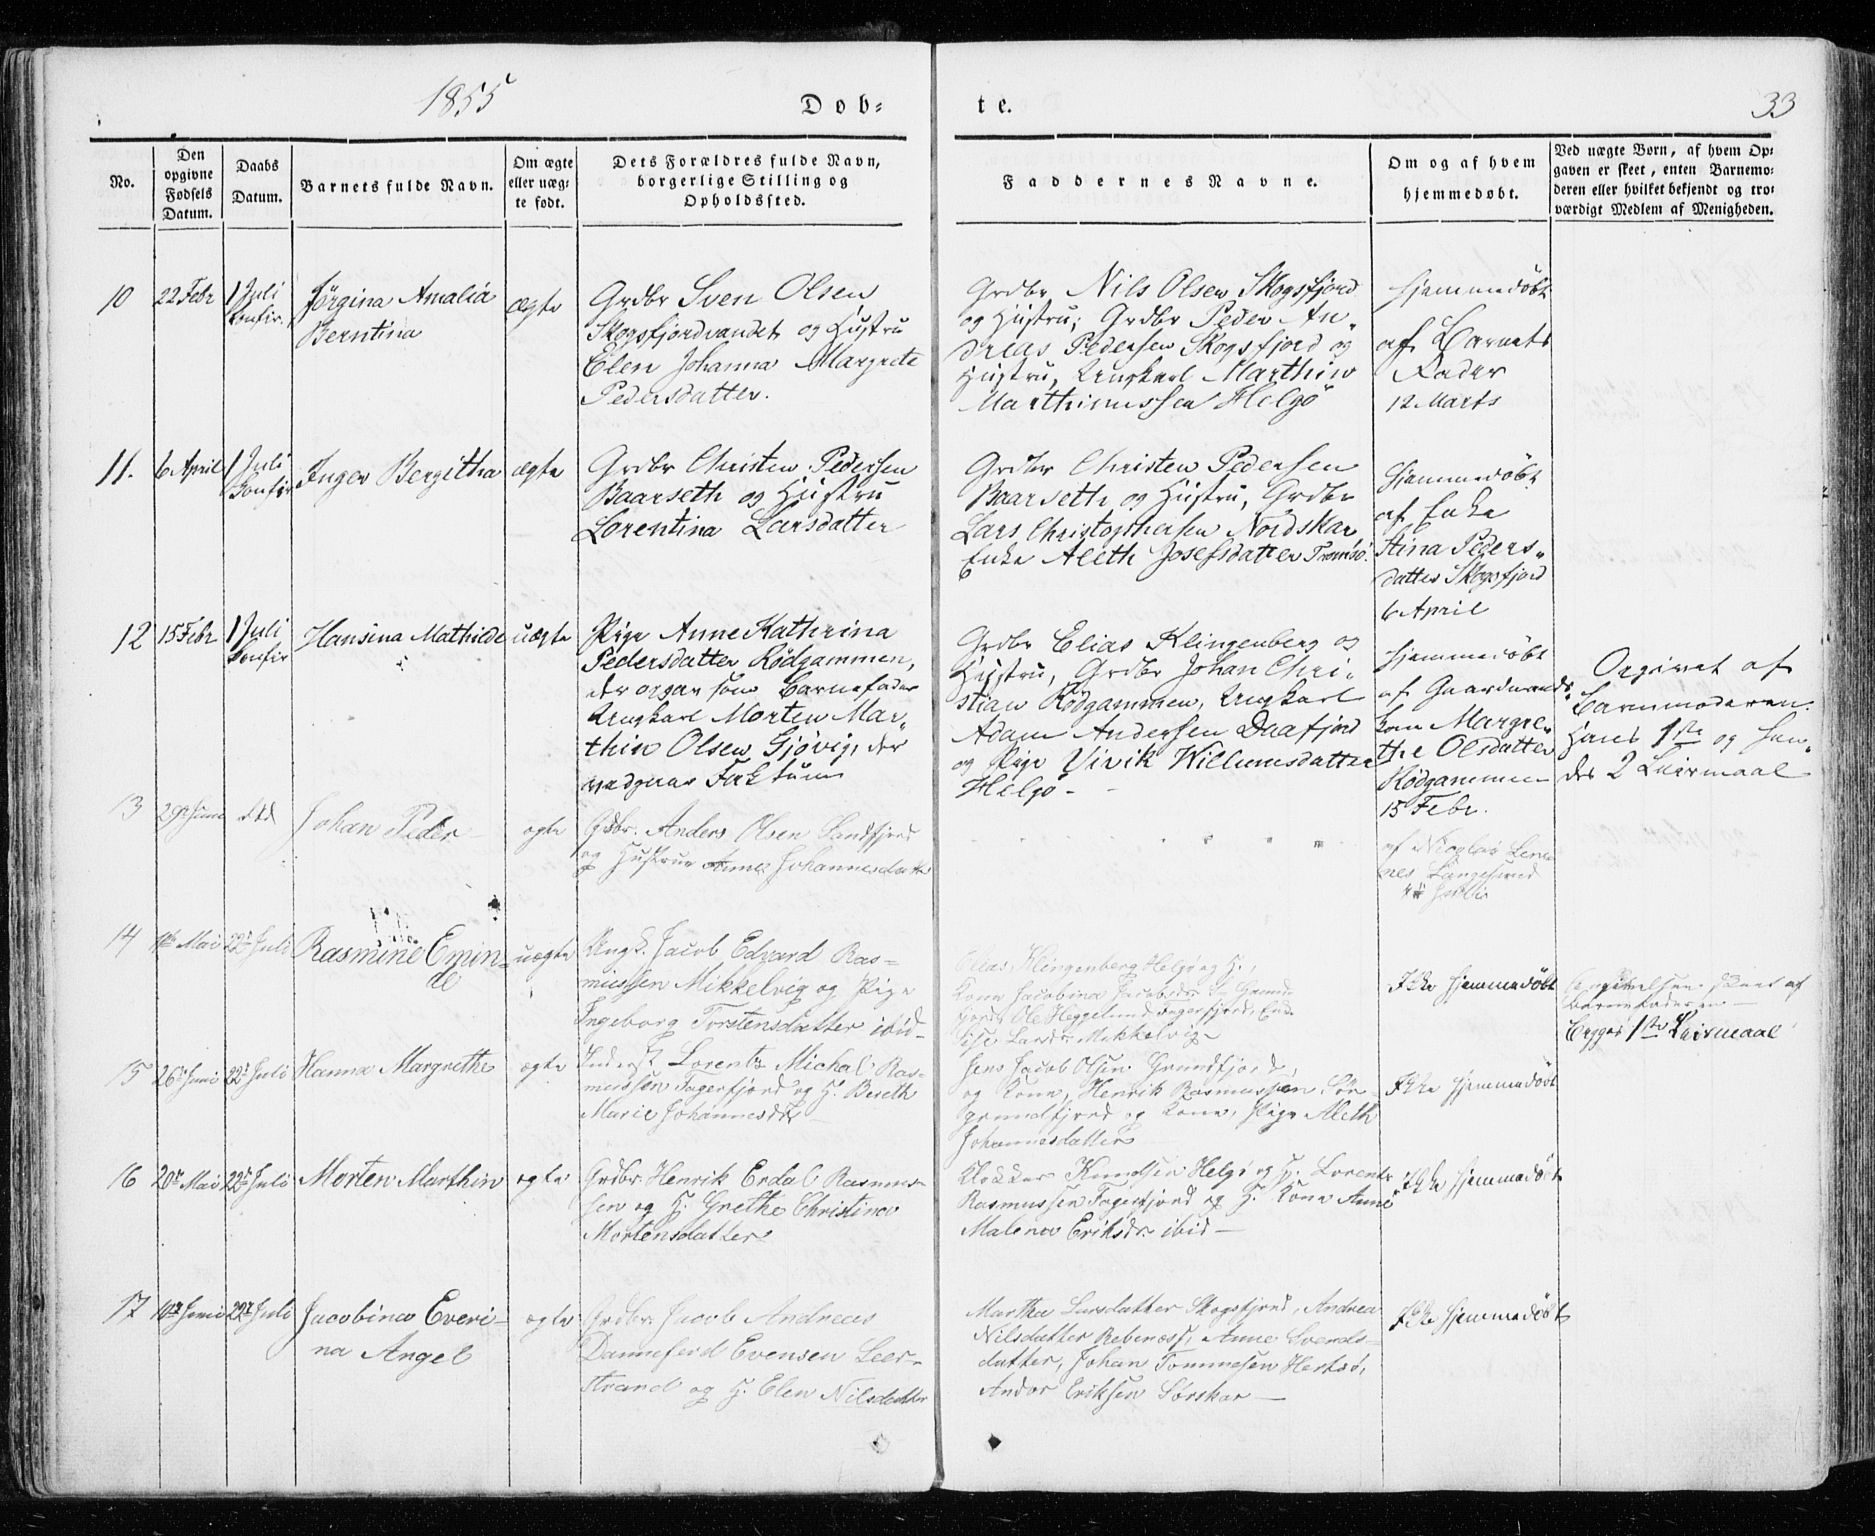 1855
Døb-
te.
33
No.
Den opgivne Fødsels Datum.
Daabs Datum.
Barnets fulde Navn.
Om ægte eller uægte født.
Dets Forældres fulde Navn, borgerlige Stilling og Opholdssted.
Faddernes Navne.
Om og af hvem hjemmedøbt.
Ved uægte Børn, af hvem Op-
gaven er skeet, enten Barnemo-
deren eller hvilket bekjendt og tro-
værdigt Medlem af Menigheden.
10
22 Febr
1 Juli
Confir.
Jørgina Amalia
Berntina
ægte
Grdbr Sven Olsen
Skogsfjordvandet og Hustru
Elen Johanna Margrete
Pedersdatter.
Grdbr Nils Olsen Skogsfjord
og Hustru, Grdbr Peder An-
drias Pedersen Skogsfjord og
Hustru, Ungkarl Marthin
Marthinussen Helgø
Hjemmedøbt
af Barnets
Fader
12 Marts
11.
6 April
1 Juli
Confir
Inger Bergitha
ægte
Grdbr Christen Pedersen
Baarseth og Hustru
Lorentina Larsdatter
Grdbr Christen Pedersen
Baarseth og Hustru, Grdbr
Lars Christophersen Nordskar
Enke Aleth Josefsdatter Tromsø.
Hjemmedøbt
af Enke
Stina Peders-
datter Skogsfjord
6 April
12
15 Febr
1 Juli
Confir
Hansina Mathilde
uægte
Pige Anne Kathrina
Pedersdatter Rødgammen,
der opgav som Barnefader
Ungkarl Morten Mar-
thin Olsen Gjøvig, der
vedgaar Faktum
Grdbr Elias Klingenberg og
Hustru, Grdbr Johan Chri-
stian Rødgammen, Ungkarl
Adam Andersen Daafjord
og Pige Vivik Willumsdatter
Helgø -
Hjemmedøbt
af Gaardmands
kone Margre-
the Olsdatter
Rødgammen
15 Febr.
Opgivet af
Barnmoderen.
Hans 1ste og hen-
des 2 Leirmaal
13
29de Juni
dtd
Johan Peder
ægte
Grdbr. Anders Olsen Sandfjord
og Hustrue Anne Johannesdatter
14
Mai
22de Juli
Rasmine Emin-
de
uægte
Ungk. Jacob Edvard Ras-
mussen Mikkelvig og Pige
Ingeborg Torstensdatter ibid-
Elias Klingenberg Helgø og H.,
Kone Jacobina Jacobsdr
Ole Heggelund Fagerfjord,
Mikkelvig-
Ikke hjemmedøbt
Angivelsen skeet af
Barnefaderen -
Begges 1ste Leirmaal
15
26de Juni
22de Juli
Hanna Margrethe
ægte
Inderst Lorentz Michal Ras-
mussen Fagerfjord og H. Bereth
Marie Johannesdtr -
Jens Jacob Olsen Grundfjord,
og Kone, Henrik Rasmussen Sør-
grundfjord og Kone, Pige Aleth
Johannesdatter -
Ikke hjemmedøbt
16
20de Mai
22de Juli
Morten Marthin
ægte
Grdbr. Henrik Erdal Rasmus-
sen og H. Grethe Christine
Mortensdatter
Klokker Knudsen Helgø og H. Lorentz
Rasmussen Fagerfjord og H. Kone Anne
Malena Eriksdr ibid -
Ikke hjemmedøbt
17
Juni
22de Juli
Jacobina Everi-
na Angel
ægte
Grdbr. Jacob Andreas
Danneferd Evensen Leer-
strand og H. Elen Nilsdatter
Martha Larsdatter Skogsfjord, Andrea
Nilsdatter Rebenæss, Anne Svends-
datter, Johan Tommesen Hersø,
Andor Eriksen Sørskar -
Ikke hjemmedøbt